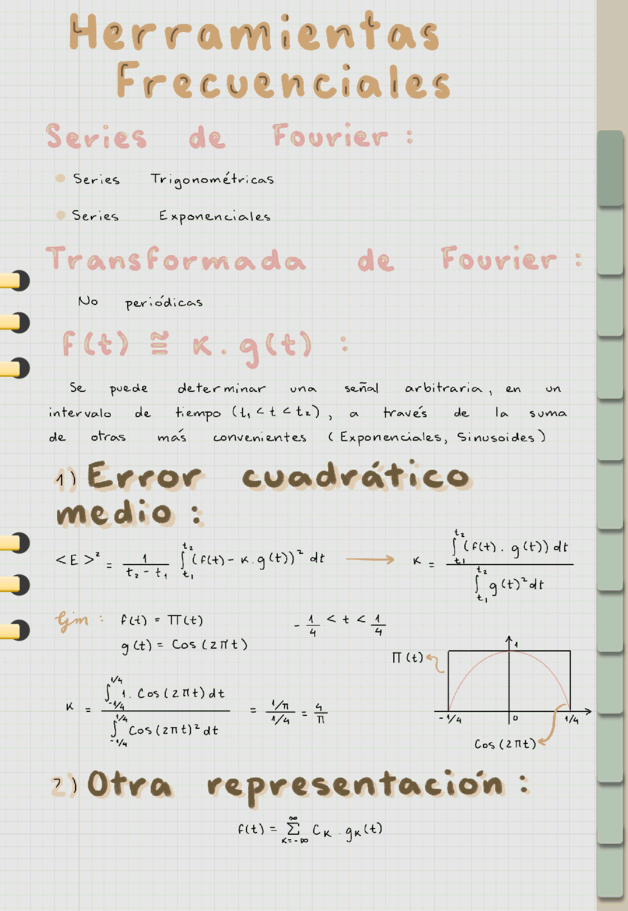 Herramientas
Frecuenciales
Series de Fourier :
Series Trigonométricas
Series Exponenciales
Transformada de Fourier :
No periódicas
f(t) ≅ K . g(t) :
Se puede determinar una señal arbitraria, en un
intervalo de tiempo (t₁ < t < t₂), a través de la suma
de otras más convenientes (Exponenciales, Sinusoides)
1) Error cuadrático
medio :
<E>² = 1/(t₂ - t₁) ∫_{t₁}^{t₂} (f(t) - K.g(t))² dt → K = ∫_{t₁}^{t₂} (f(t) . g(t)) dt / ∫_{t₁}^{t₂} g(t)² dt
Ejm : f(t) = Π(t) - 1/4 < t < 1/4
g(t) = Cos (2πt)
Π(t) 1
K = ∫_{-1/4}^{1/4} 1. Cos (2πt) dt / ∫_{-1/4}^{1/4} Cos (2πt)² dt = 1/π / 1/4 = 4/π
-1/4 0 1/4
Cos (2πt)
2) Otra representación :
f(t) = ∑_{K=-∞}^{∞} C_K . g_K(t)